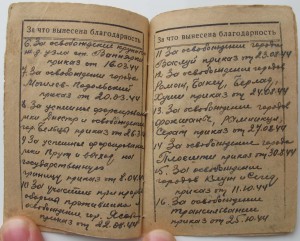 За что вынесена благодарность
6. За освобождение крупного
ж.д. узла от
приказ от 16.03.44
7. За освобождение города
Могилев-Подольский
приказ от 20.03.44
8. За успешное форсирование
Днестр и освобождение
гор Бельцы приказ от 26.03.44
9. За успешное форсирование
Прут и выход на
государственную
границу, приказ от 8.04.44
10 За участие при прорыве
обороны противника и
освобождение гор. Яссы
приказ от 22.08.44
За что вынесена благодарность
11 За освобождение города
Васлуй приказ от 23.08.44
12 За освобождение городов
Роман, Бакеу, Берлад,
Хуши приказ от 24.08.44
13 За освобождение городов
Фокшаны, Рымникул-
Серат приказ от 27.08.44
14 За освобождение города
Плоешти приказ от 30.08.44
15. За освобождение
городов Клуж и Сегед,
приказ от 11.10.44
16 За освобождение
Трансильвании
приказ от 25.10.44